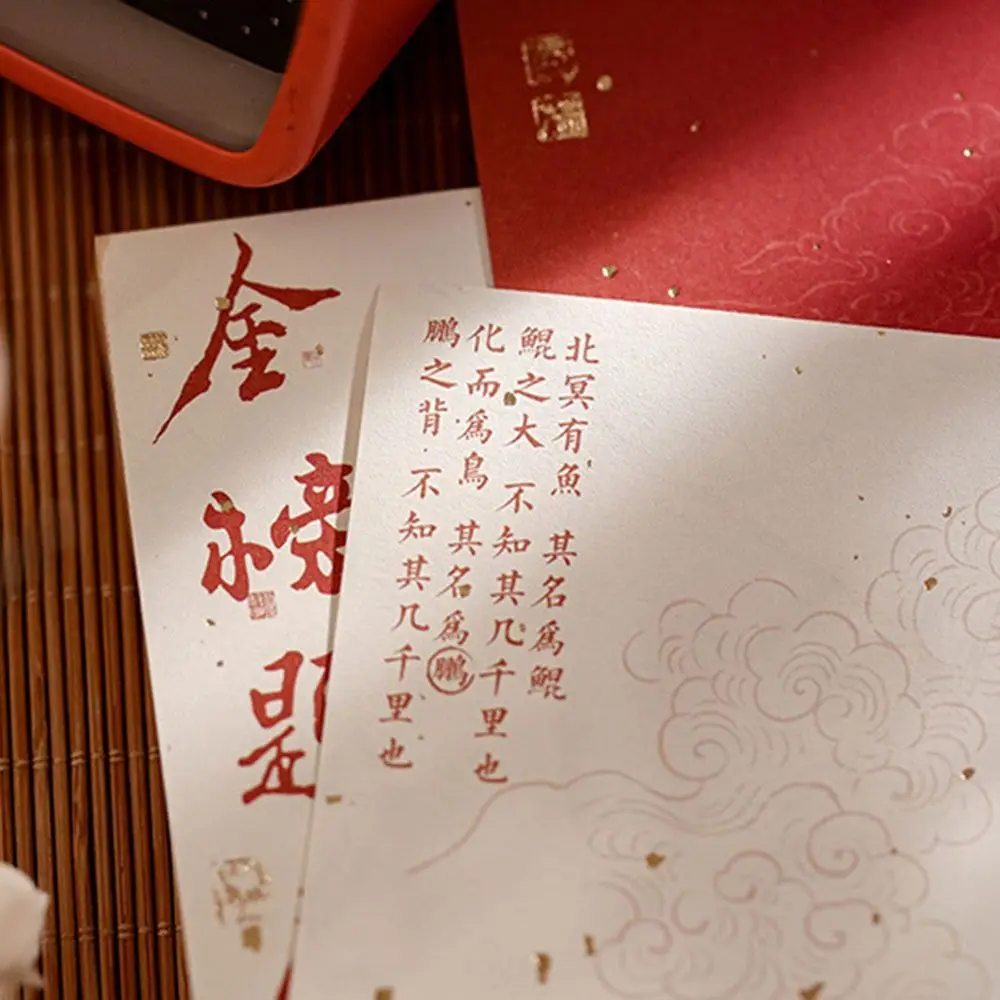 北冥有魚 其名為鯤
鯤之大 不知其几千里也
化而為鳥 其名為鵬
鵬之背 不知其几千里也
金榜題